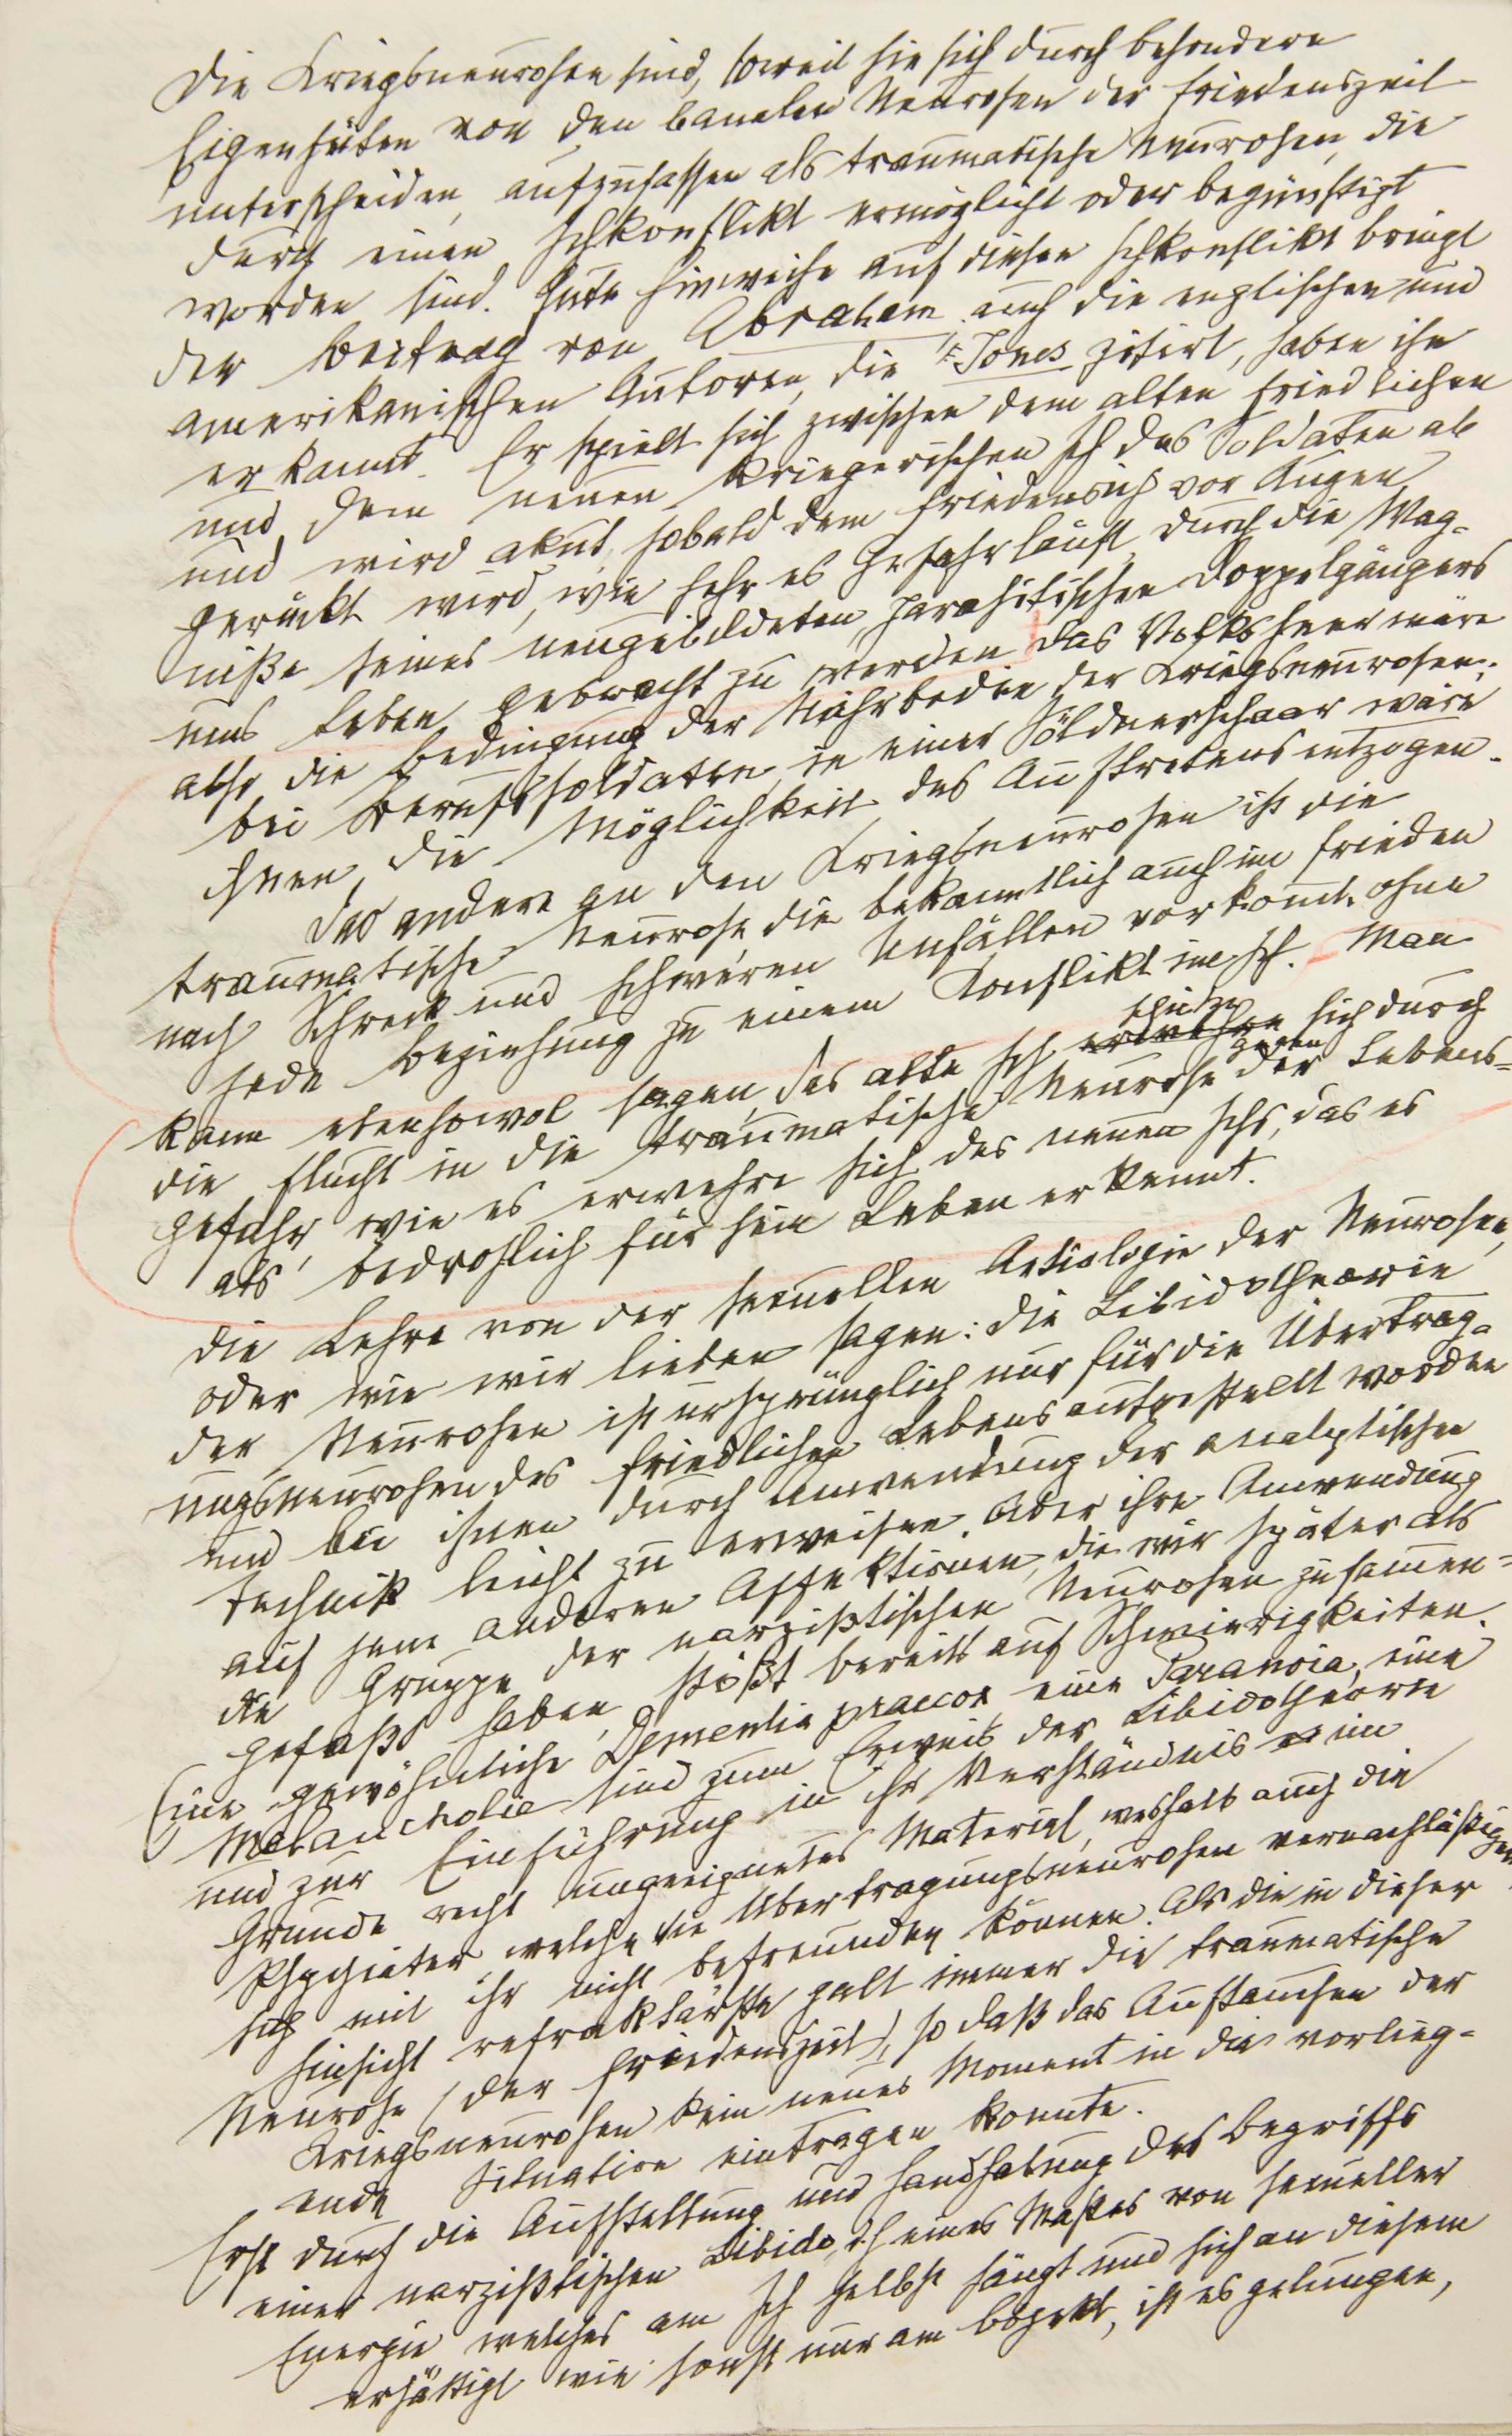 Die Kriegsneurosen sind, soweit sie sich durch besondere
Eigenheiten von den banalen Neurosen der Friedenszeit
unterscheiden, aufzufassen als traumatische Neurosen, die
durch einen Ichkonflikt ermöglicht oder begünstigt
worden sind. Gute Hinweise auf diesen Ichkonflikt bringt
der Beitrag von Abraham; auch die englischen und
amerikanischen Autoren, die Jones zitirt, haben ihn
erkannt. Er spielt sich zwischen dem alten friedlichen
und dem neuen kriegerischen Ich des Soldaten ab
und wird akut, sobald dem Friedensich vor Augen
gerückt wird, wie sehr es Gefahr läuft, durch die Wag-
niße seines neugebildeten parasitischen Doppelgängers
ums Leben gebracht zu werden. Das Volksheer wäre
also die Bedingung, der Nährboden der Kriegsneurosen;
bei Berufssoldaten, in einer Söldnerschaar wäre
ihnen die Möglichkeit des Auftretens entzogen.
Das andere an den Kriegsneurosen ist die
traumatische Neurose, die bekanntlich auch im Frieden
nach Schreck und schweren Unfällen vorkomt, ohne
jede Beziehung zu einem Konflikt im Ich. Man
kann ebensowol sagen, das alte Ich erwehre schütze sich durch
die Flucht in die traumatische Neurose gegen der Lebens-
gefahr, wie es erwehre sich des neuen Ichs, das es
als bedrohlich für sein Leben erkennt.
Die Lehre von der sexuellen Aetiologie der Neurosen,
oder wie wir lieber sagen: die Libidotheorie
der Neurosen ist ursprünglich nur für die Übertrag-
ungsneurosen des friedlichen Lebens aufgestellt worden
und bei ihnen durch Anwendung der analytischen
Technik leicht zu erweisen. Aber ihre Anwendung
auf jene anderen Affektionen, die wir später als
die Gruppe der narzißtischen Neurosen zusammen-
gefaßt haben, stößt bereits auf Schwierigkeiten.
Eine gewöhnliche Dementia praecox, eine Paranoia, eine
Melancholie sind zum Erweis der Libidotheorie
und zur Einführung in ihr Verständnis im
Grunde recht ungeeignetes Material, weshalb auch die
Psychiater, welche die Übertragungsneurosen vernachläßigen,
sich mit ihr nicht befreunden können. Als die in dieser
Hinsicht refraktärste galt immer die traumatische
Neurose (der Friedenszeit), so daß das Auftauchen der
Kriegsneurosen kein neues Moment in die vorlieg-
ende Situation eintragen konnte.
Erst durch die Aufstellung und Handhabung des Begriffs
einer narzißtischen Libido, d.h eines Maßes von sexueller
Energie, welches am Ich selbst hängt und sich an diesem
ersättigt wie sonst nur am Objekt, ist es gelungen,